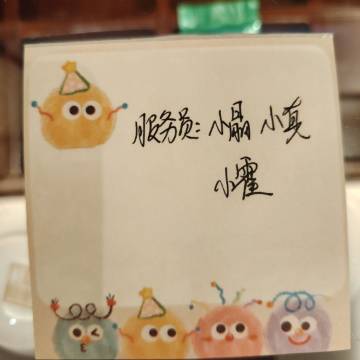 服务员：小晶 小真
小霍